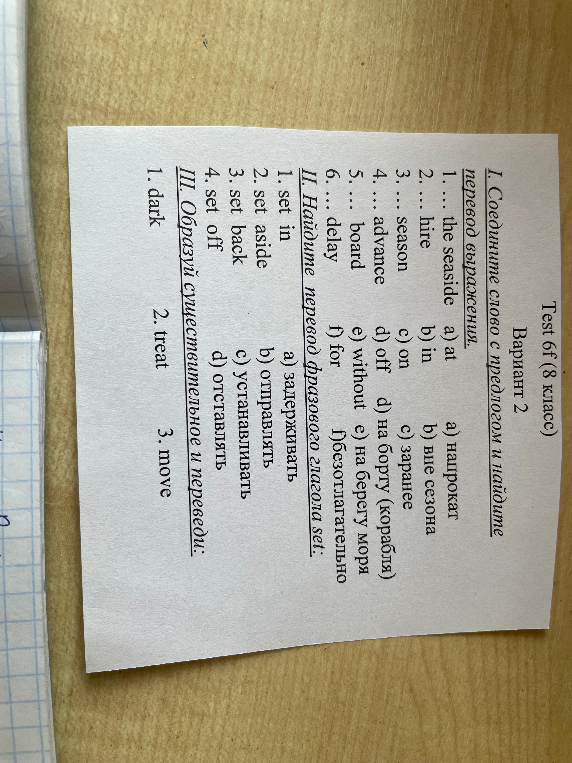 Test 6f (8 класс)
Вариант 2
I. Соедините слово с предлогом и найдите
перевод выражения.
1. … the seaside a) at a) напрокат
2. … hire b) in b) вне сезона
3. … season c) on c) заранее
4. … advance d) off d) на борту (корабля)
5. … board e) without e) на берегу моря
6. … delay f) for f)безотлагательно
II. Найдите перевод фразового глагола set:
1. set in a) задерживать
2. set aside b) отправлять
3. set back c) устанавливать
4. set off d) отставлять
III. Образуй существительное и переведи:
1. dark 2. treat 3. move